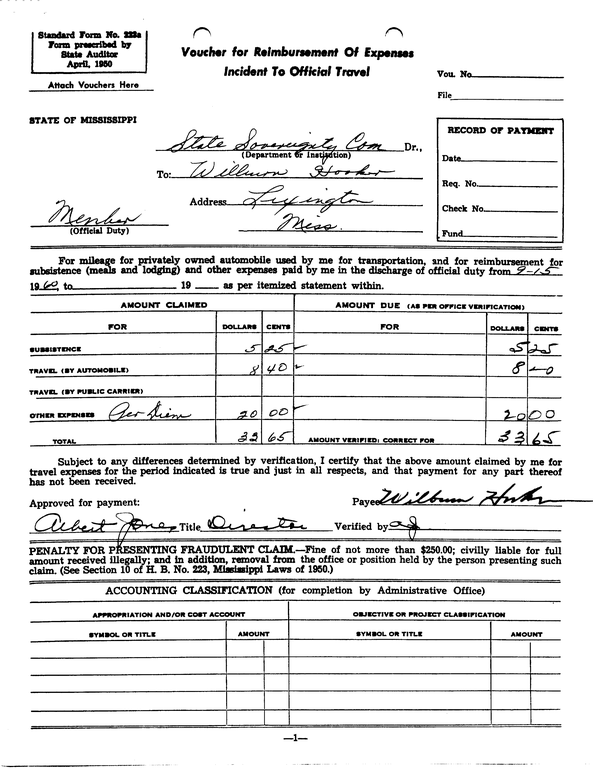 Standard Form No. 223a
Form prescribed by
State Auditor
April, 1950
Attach Vouchers Here
Voucher for Reimbursement Of Expenses
Incident To Official Travel
Vou. No.
File
STATE OF MISSISSIPPI
State Sovereignty Com Dr.,
(Department or Institution)
To: Wilburn Hooker
Address Lexington
Miss.
Member
(Official Duty)
RECORD OF PAYMENT
Date
Req. No.
Check No.
Fund
For mileage for privately owned automobile used by me for transportation, and for reimbursement for
subsistence (meals and lodging) and other expenses paid by me in the discharge of official duty from 9-15
1960, to 19 as per itemized statement within.
AMOUNT CLAIMED AMOUNT DUE (AS PER OFFICE VERIFICATION)
FOR DOLLARS CENTS FOR DOLLARS CENTS
SUBSISTENCE 5 25 5 25
TRAVEL (BY AUTOMOBILE) 8 40 8 40
TRAVEL (BY PUBLIC CARRIER)
OTHER EXPENSES Per Diem 20 00 20 00
TOTAL 33 65 AMOUNT VERIFIED: CORRECT FOR 33 65
Subject to any differences determined by verification, I certify that the above amount claimed by me for
travel expenses for the period indicated is true and just in all respects, and that payment for any part thereof
has not been received.
Approved for payment: Payee Wilburn Hooker
Albert Jones Title Director Verified by aj
PENALTY FOR PRESENTING FRAUDULENT CLAIM.—Fine of not more than $250.00; civilly liable for full
amount received illegally; and in addition, removal from the office or position held by the person presenting such
claim. (See Section 10 of H. B. No. 223, Mississippi Laws of 1950.)
ACCOUNTING CLASSIFICATION (for completion by Administrative Office)
APPROPRIATION AND/OR COST ACCOUNT OBJECTIVE OR PROJECT CLASSIFICATION
SYMBOL OR TITLE AMOUNT SYMBOL OR TITLE AMOUNT
—1—